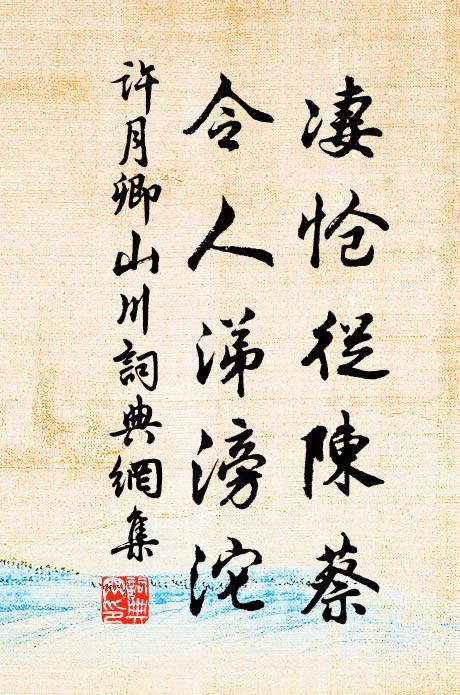 凄怆從陳蔡
令人涕滂沱
許月卿山川詞典網集